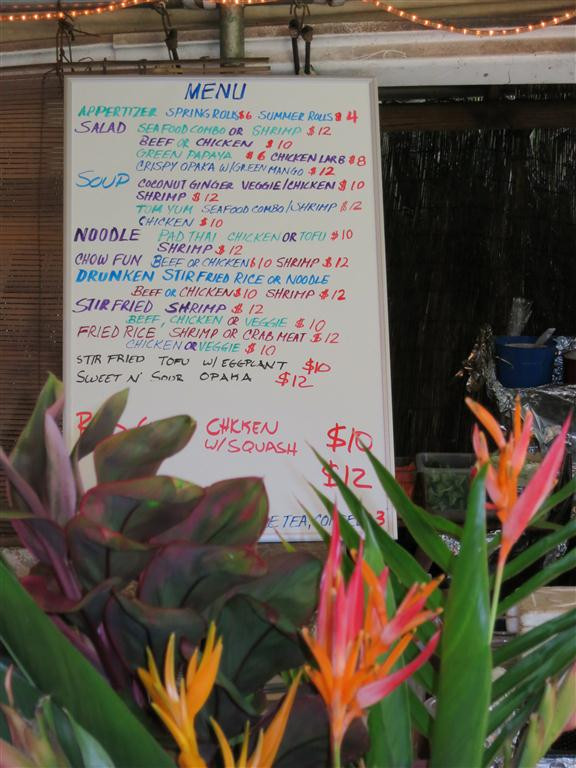 MENU
APPERTIZER SPRING ROLLS $6 SUMMER ROLLS $4
SALAD SEAFOOD COMBO OR SHRIMP $12
BEEF OR CHICKEN $10
GREEN PAPAYA $6 CHICKEN LARB $8
CRISPY OPAKA W/GREEN MANGO $12
SOUP COCONUT GINGER VEGGIE/CHICKEN $10
SHRIMP $12
TOM YUM SEAFOOD COMBO/SHRIMP $12
CHICKEN $10
NOODLE PAD THAI CHICKEN OR TOFU $10
SHRIMP $12
CHOW FUN BEEF OR CHICKEN $10 SHRIMP $12
DRUNKEN STIRFRIED RICE OR NOODLE
BEEF OR CHICKEN $10 SHRIMP $12
STIRFRIED SHRIMP $12
BEEF, CHICKEN OR VEGGIE $10
FRIED RICE SHRIMP OR CRAB MEAT $12
CHICKEN OR VEGGIE $10
STIR FRIED TOFU W/ EGGPLANT $10
SWEET N' SOUR OPAKA $12
CHICKEN $10
W/SQUASH
$12
TEA, 3